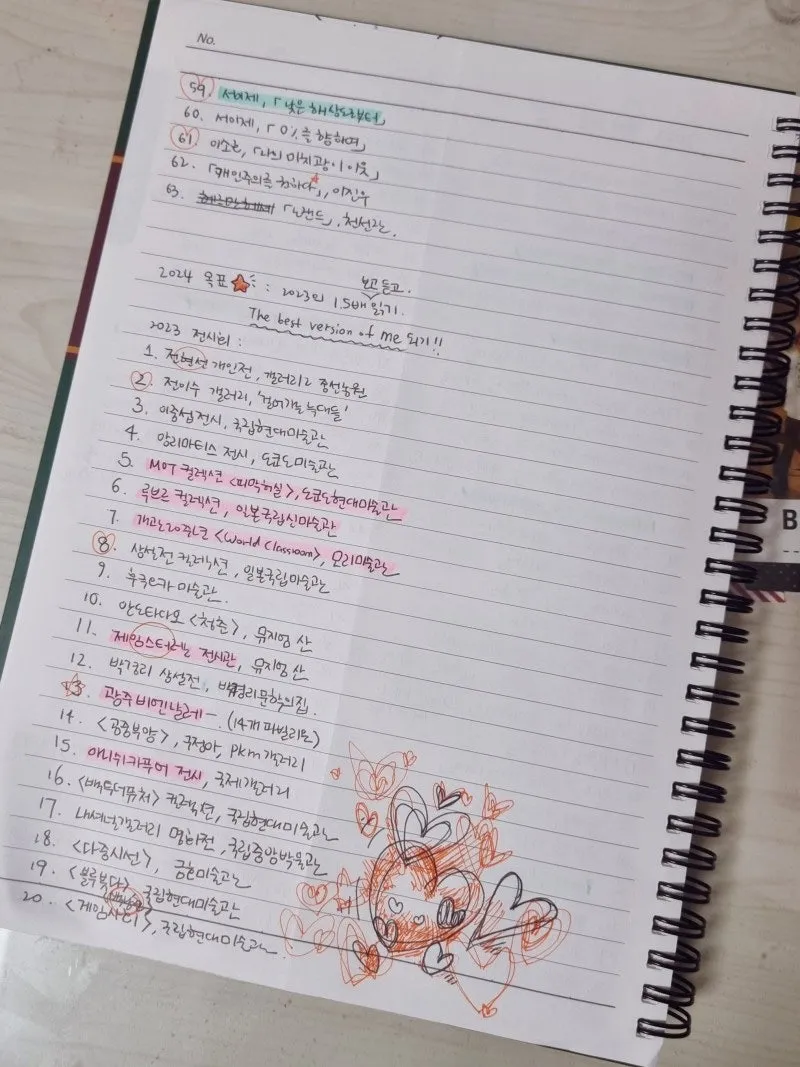 No.
59. 서이제, 「낮은 해상도로부터」
60. 서이제, 「0%를 향하여」
61. 이소호, 「나의 미치광이 이웃」
62. 「개인주의를 권하다」, 이진우
63. 「노랜드」, 천선란.
보고 듣고.
2024 목표 : 2023의 1.5배 읽기.
The best version of me 되기!!
2023 전시회 :
1. 전현선 개인전, 갤러리2 중선농원
2. 전이수 갤러리, '걸어가는 늑대들'
3. 이중섭 전시, 국립현대미술관
4. 앙리마티스 전시, 도쿄도미술관
5. MOT 컬렉션 <피막허실>, 도쿄도현대미술관
6. 루브르 컬렉션, 일본국립신미술관
7. 개관20주년 <World Classroom>, 모리미술관
8. 상설전 컬렉션, 일본국립미술관
9. 후쿠오카 미술관.
10. 안도타다오 <청춘>, 뮤지엄 산
11. 제임스터렐 전시관, 뮤지엄 산
12. 박경리 상설전, 박경리문학의집.
13. 광주비엔날레 - (14개 파빌리온)
14. <공중복양>, 구정아, PKM 갤러리
15. 애니쉬카푸어 전시, 국제갤러리
16. <백투더퓨처> 컬렉션, 국립현대미술관
17. 내셔널갤러리 명화전, 국립중앙박물관
18. <다중시선>, 금호미술관
19. 국립현대미술관
20. <게임사회>, 국립현대미술관
B